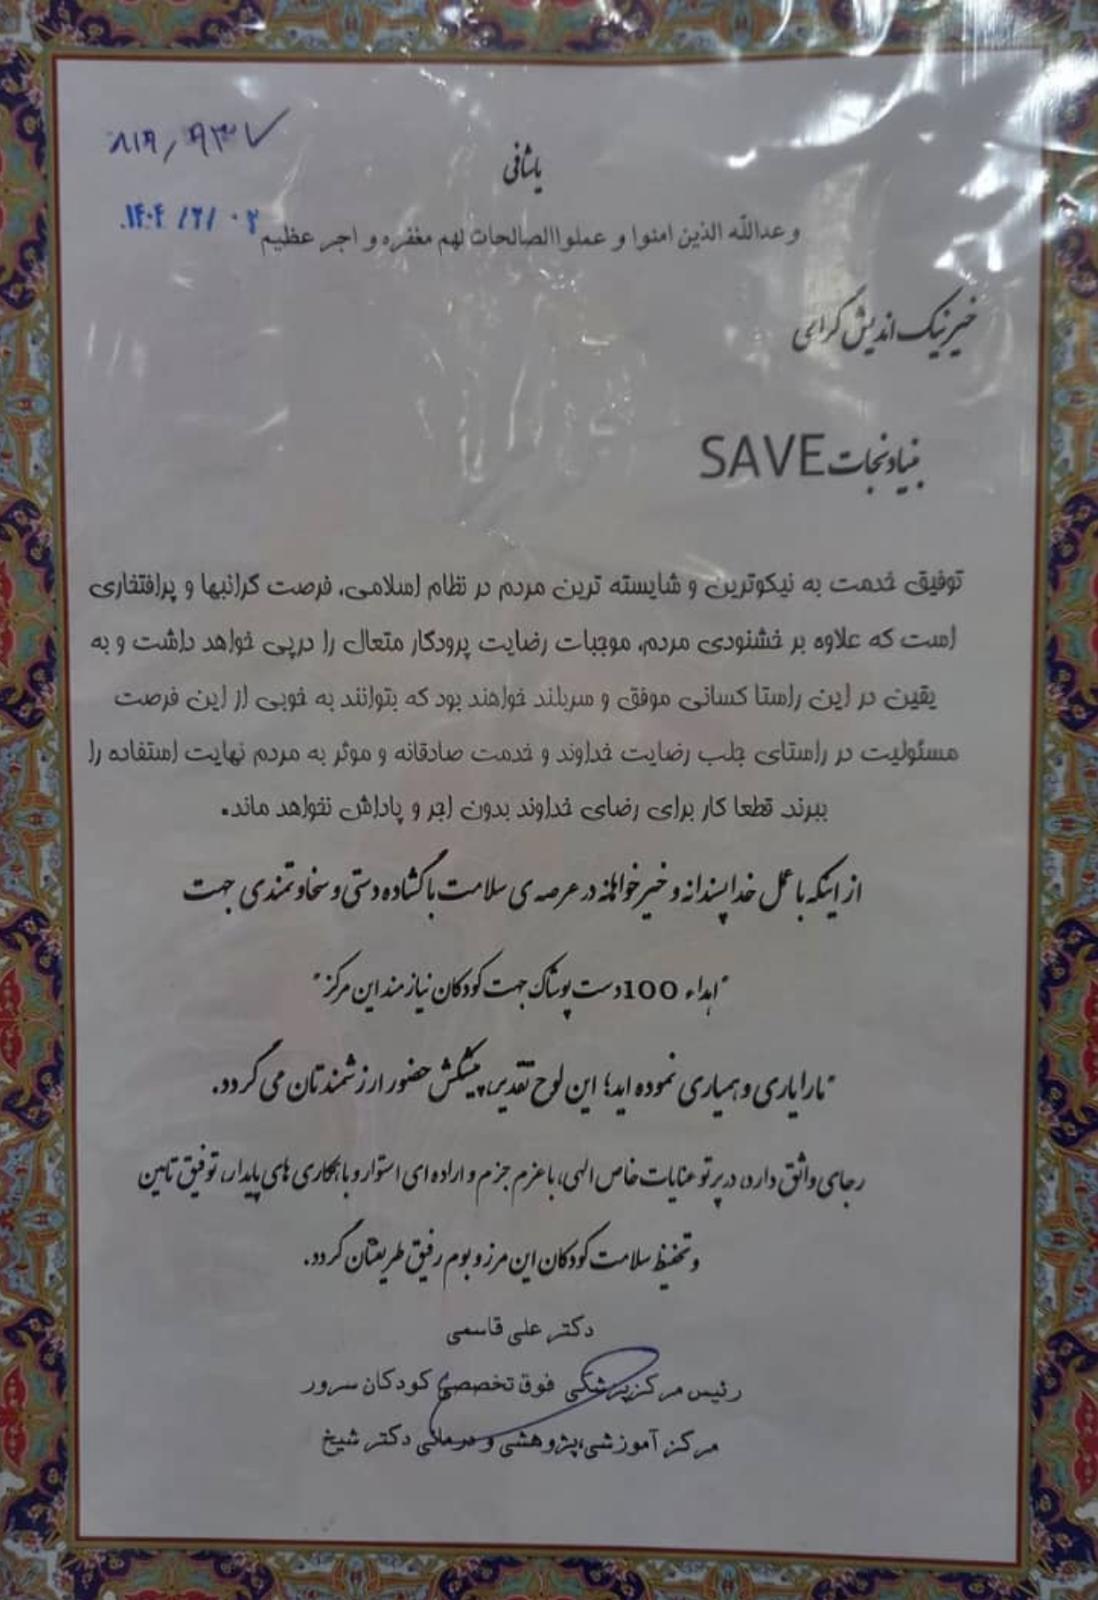 ۸۱۹ / ۹۳۷
۱۴۰۴ /۲/ ۰۲
یا شافی
وعدالله الذین امنوا و عملواالصالحات لهم مغفره و اجر عظیم
خیر نیک اندیش گرامی
بنیاد نجات SAVE
توفیق خدمت به نیکوترین و شایسته ترین مردم در نظام اسلامی، فرصت گرانبها و پرافتخاری
است که علاوه بر خشنودی مردم، موجبات رضایت پرودکار متعال را درپی خواهد داشت و به
یقین در این راستا کسانی موفق و سربلند خواهند بود که بتوانند به خوبی از این فرصت
مسئولیت در راستای جلب رضایت خداوند و خدمت صادقانه و موثر به مردم نهایت استفاده را
ببرند. قطعا کار برای رضای خداوند بدون اجر و پاداش نخواهد ماند.
از اینکه با عمل خداپسندانه و خیرخواهانه در عرصه ی سلامت با گشاده دستی و سخاوتمندی جهت
"اهداء 100 دست پوشاک جهت کودکان نیازمند این مرکز"
"ما را یاری و همیاری نموده اید؛ این لوح تقدیر، پیشکش حضور ارزشمندتان می گردد.
رجای واثق دارد، در پرتو عنایات خاص الهی، با عزم جزم و اراده ای استوار و با همکاری های پایدار، توفیق تامین
و تحفیظ سلامت کودکان این مرز و بوم رفیق طریقتان گردد.
دکتر علی قاسمی
رئیس مرکز پزشکی فوق تخصصی کودکان سرور
مرکز آموزشی،پژوهشی و درمانی دکتر شیخ